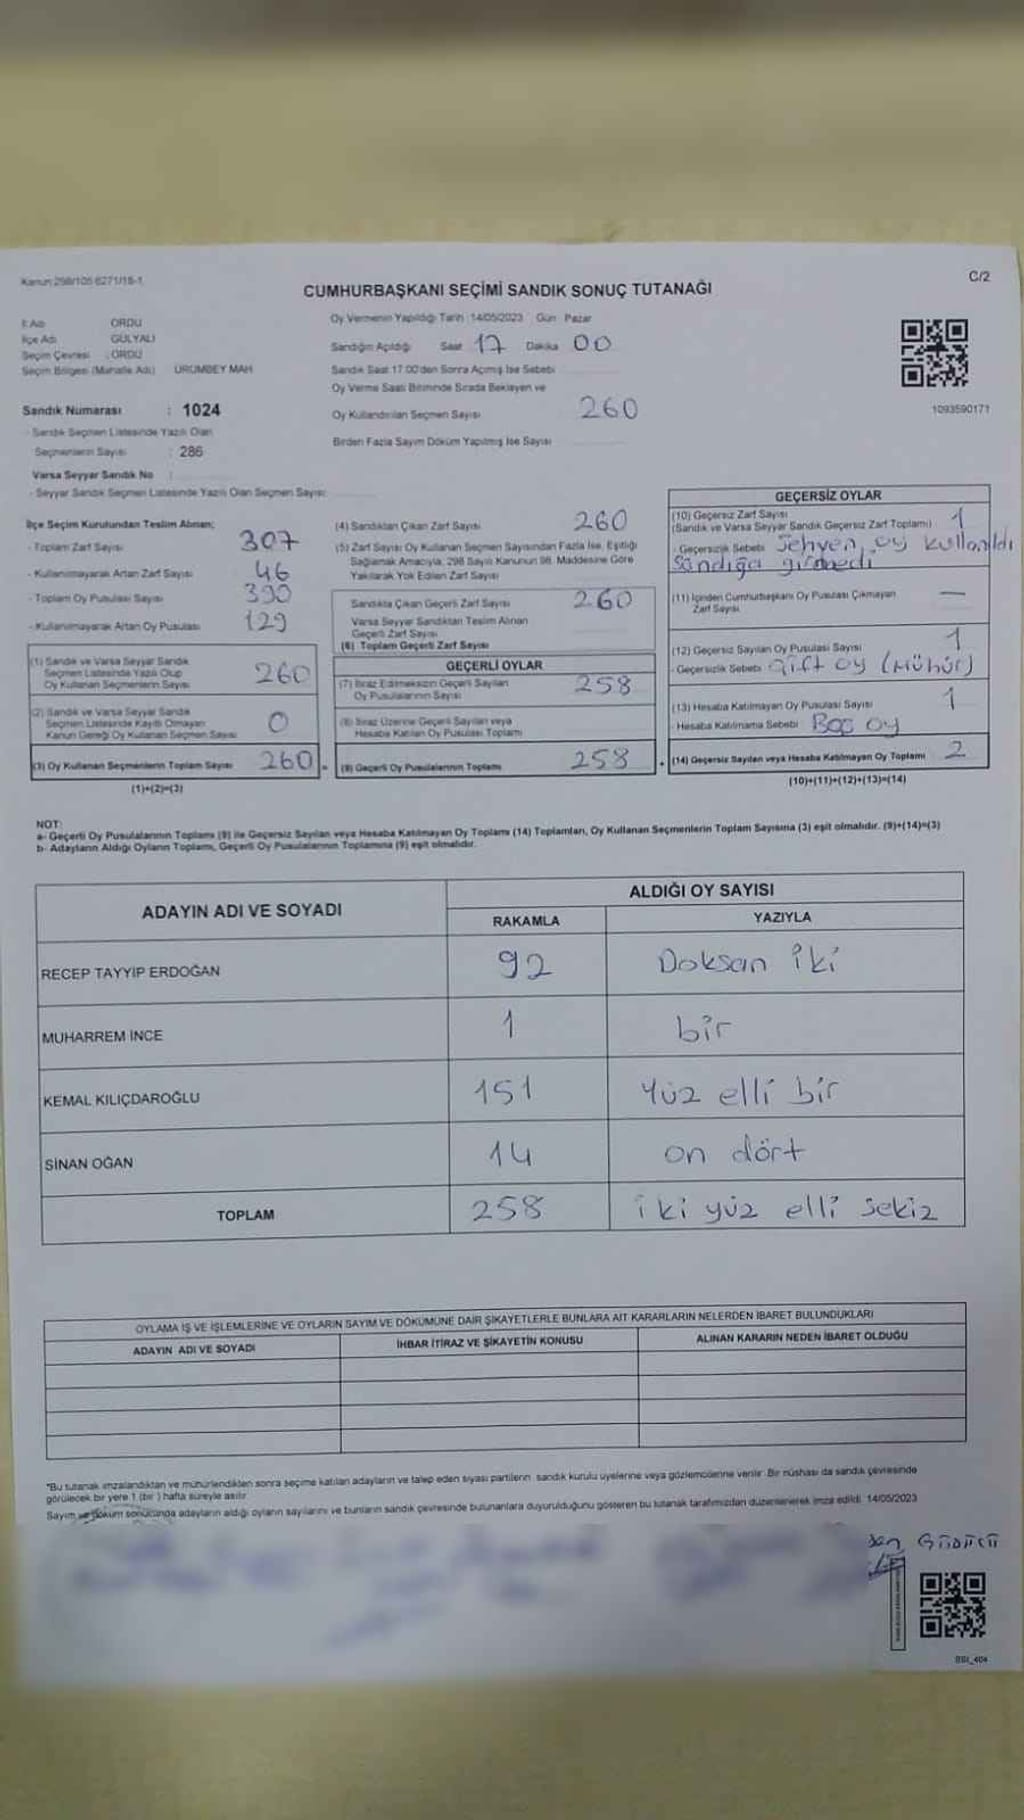 Kanun:298/105 6271/16-1
C/2
CUMHURBAŞKANI SEÇİMİ SANDIK SONUÇ TUTANAĞI
İl Adı ORDU
İlçe Adı GÜLYALI
Seçim Çevresi : ORDU
Seçim Bölgesi (Mahalle Adı) URUMBEY MAH
Sandık Numarası : 1024
- Sandık Seçmen Listesinde Yazılı Olan
Seçmenlerin Sayısı : 286
Varsa Seyyar Sandık No :
- Seyyar Sandık Seçmen Listesinde Yazılı Olan Seçmen Sayısı:
Oy Vermenin Yapıldığı Tarih :14/05/2023 Gün: Pazar
Sandığın Açıldığı Saat 17 Dakika 00
Sandık Saat 17:00'den Sonra Açılmış İse Sebebi
Oy Verme Saati Bitiminde Sırada Bekleyen ve
Oy Kullandırılan Seçmen Sayısı 260
Birden Fazla Sayım Döküm Yapılmış İse Sayısı
1093590171
İlçe Seçim Kurulundan Teslim Alınan;
- Toplam Zarf Sayısı 307
- Kullanılmayarak Artan Zarf Sayısı 46
- Toplam Oy Pusulası Sayısı 390
- Kullanılmayarak Artan Oy Pusulası 129
(1) Sandık ve Varsa Seyyar Sandık
Seçmen Listesinde Yazılı Olup
Oy Kullanan Seçmenlerin Sayısı 260
(2) Sandık ve Varsa Seyyar Sandık
Seçmen Listesinde Kayıtlı Olmayan
Kanun Gereği Oy Kullanan Seçmen Sayısı 0
(3) Oy Kullanan Seçmenlerin Toplam Sayısı 260
(1)+(2)=(3)
(4) Sandıktan Çıkan Zarf Sayısı 260
(5) Zarf Sayısı Oy Kullanan Seçmen Sayısından Fazla İse, Eşitliği
Sağlamak Amacıyla, 298 Sayılı Kanunun 98. Maddesine Göre
Yakılarak Yok Edilen Zarf Sayısı
Sandıkta Çıkan Geçerli Zarf Sayısı 260
Varsa Seyyar Sandıktan Teslim Alınan
Geçerli Zarf Sayısı
(6) Toplam Geçerli Zarf Sayısı
GEÇERLİ OYLAR
(7) İtiraz Edilmeksizin Geçerli Sayılan
Oy Pusulalarının Sayısı 258
(8) İtiraz Üzerine Geçerli Sayılan veya
Hesaba Katılan Oy Pusulası Toplamı
(9) Geçerli Oy Pusulalarının Toplamı 258
GEÇERSİZ OYLAR
(10) Geçersiz Zarf Sayısı
(Sandık ve Varsa Seyyar Sandık Geçersiz Zarf Toplamı) 1
- Geçersizlik Sebebi Sehven oy kullanıldı
Sandığa girmedi
(11) İçinden Cumhurbaşkanı Oy Pusulası Çıkmayan
Zarf Sayısı —
(12) Geçersiz Sayılan Oy Pusulası Sayısı 1
- Geçersizlik Sebebi Çift oy (Mühür)
(13) Hesaba Katılmayan Oy Pusulası Sayısı 1
- Hesaba Katılmama Sebebi Boş oy
(14) Geçersiz Sayılan veya Hesaba Katılmayan Oy Toplamı 2
(10)+(11)+(12)+(13)=(14)
NOT:
a- Geçerli Oy Pusulalarının Toplamı (9) ile Geçersiz Sayılan veya Hesaba Katılmayan Oy Toplamı (14) Toplamları, Oy Kullanan Seçmenlerin Toplam Sayısına (3) eşit olmalıdır. (9)+(14)=(3)
b- Adayların Aldığı Oyların Toplamı, Geçerli Oy Pusulalarının Toplamına (9) eşit olmalıdır.
ADAYIN ADI VE SOYADI ALDIĞI OY SAYISI
RAKAMLA YAZIYLA
RECEP TAYYİP ERDOĞAN 92 Doksan iki
MUHARREM İNCE 1 bir
KEMAL KILIÇDAROĞLU 151 Yüz elli bir
SİNAN OĞAN 14 on dört
TOPLAM 258 iki yüz elli sekiz
OYLAMA İŞ VE İŞLEMLERİNE VE OYLARIN SAYIM VE DÖKÜMÜNE DAİR ŞİKAYETLERLE BUNLARA AİT KARARLARIN NELERDEN İBARET BULUNDUKLARI
ADAYIN ADI VE SOYADI İHBAR İTİRAZ VE ŞİKAYETİN KONUSU ALINAN KARARIN NEDEN İBARET OLDUĞU
*Bu tutanak imzalandıktan ve mühürlendikten sonra seçime katılan adayların ve talep eden siyasi partilerin sandık kurulu üyelerine veya gözlemcilerine verilir. Bir nüshası da sandık çevresinde
görülecek bir yere 1 (bir ) hafta süreyle asılır.
Sayım ve döküm sonucunda adayların aldığı oyların sayılarını ve bunların sandık çevresinde bulunanlara duyurulduğunu gösteren bu tutanak tarafımızdan düzenlenerek imza edildi. 14/05/2023